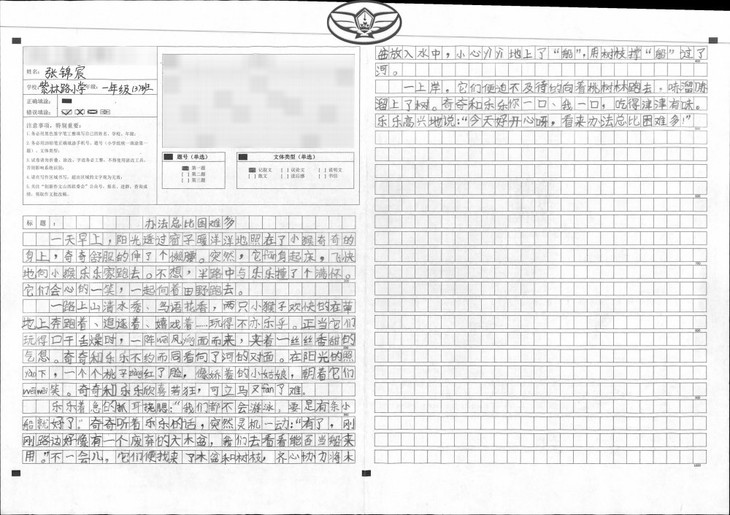 姓名：张锦宸
学校：紫林路小学 年级：一年级（3）班
正确填涂：
错误填涂：
注意事项，特别重要：
题号（单选）
第一题
第二题
第三题
文体类型（单选）
记叙文 议论文 说明文
散文 读后感 书信
标题：办法总比困难多
一天早上，阳光透过窗子暖洋洋地照在了小猴奇奇的
身上，奇奇舒服的伸了个懒腰。突然，它翻身起床，飞快
地向小猴乐乐家跑去。不想，半路中与乐乐撞了个满怀。
它们会心的一笑，一起向着田野跑去。
一路上山清水秀、鸟语花香，两只小猴子欢快的在草
地上奔跑着、追逐着、嬉戏着……玩得不亦乐乎。正当它们
玩得口干舌燥时，一阵风迎面而来，夹着一丝丝香甜的
气息。奇奇和乐乐不约而同看向了河的对面。在阳光的照
下，一个个桃子红了脸，像娇羞的小姑娘，朝着它们
weiwei笑。奇奇和乐乐欣喜若狂，可立马又犯了难。
乐乐着急的抓耳挠腮：“我们都不会游泳，要是有条小
船就好了。”奇奇听着乐乐的话，突然灵机一动：“有了，刚
刚路边好像有一个废弃的大木盆，我们去看看能否当船来
用。”不一会儿，它们便找来了木盆和树枝，齐心协力将木
盆放入水中，小心yiyi地上了“船”，用树枝撑“船”过了
河。
一上岸，它们便迫不及待的向着桃树林跑去，哧溜哧
溜上了树。奇奇和乐乐你一口、我一口，吃得津津有味。
乐乐高兴地说：“今天好开心呀，看来办法总比困难多！”